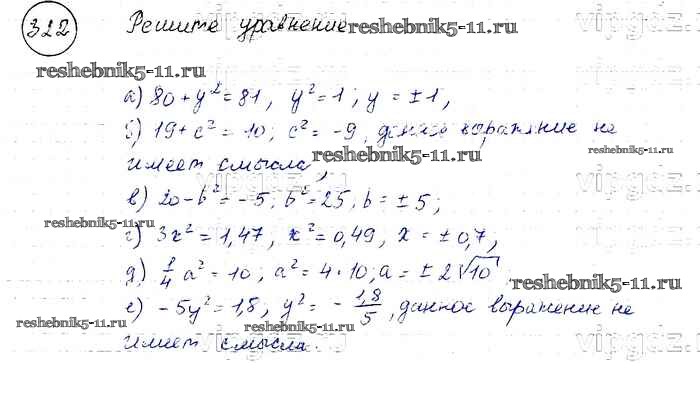 322 Решите уравнение reshebnik5-11.ru
reshebnik5-11.ru
а) 80 + y² = 81, y² = 1; y = ±1;
б) 19 + c² = 10; c² = -9, данное выражение не
имеет смысла; reshebnik5-11.ru
в) 20 - b² = -5; b² = 25, b = ±5;
reshebnik5-11.ru
г) 3x² = 1,47, x² = 0,49, x = ±0,7;
д) 1/4 a² = 10; a² = 4·10; a = ±2√10; reshebnik5-11.ru
е) -5y² = 1,8, y² = -1,8/5, данное выражение не
reshebnik5-11.ru reshebnik5-11.ru
имеет смысла.
vipgdz.ru